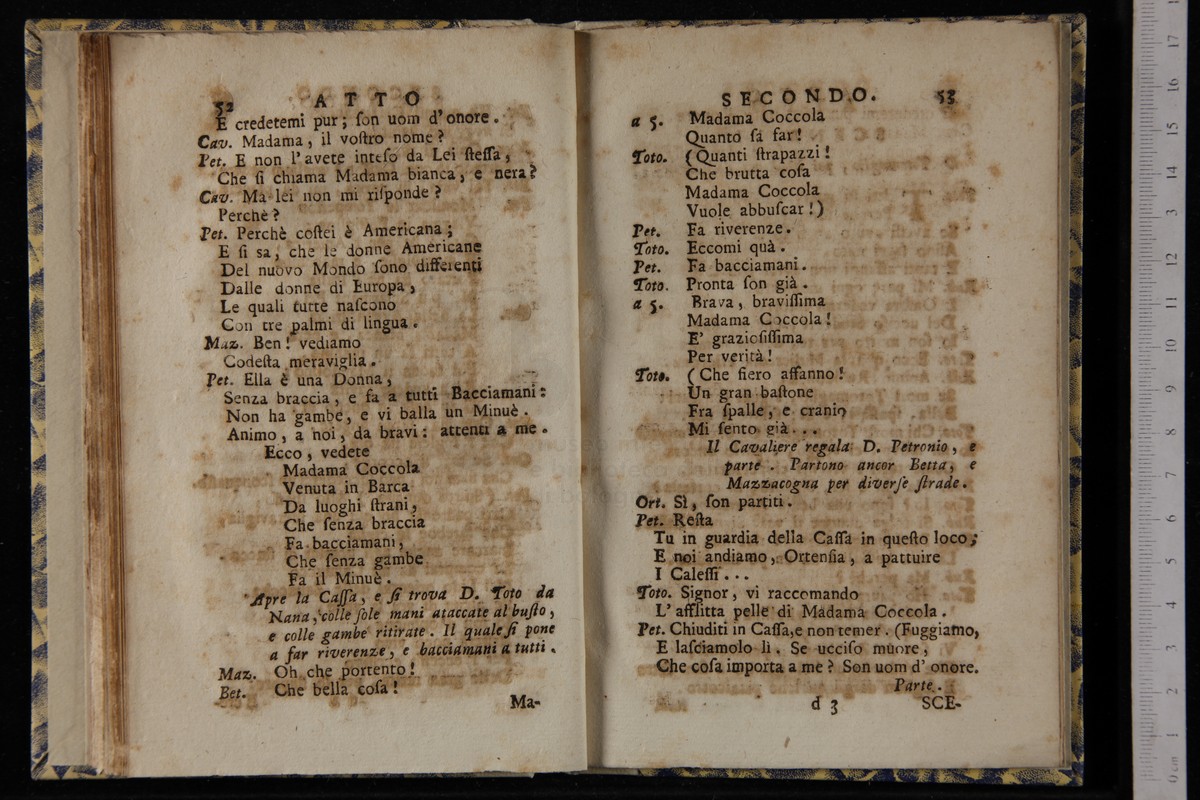 52 ATTO
E credetemi pur; ſon uom d'onore.
Cav. Madama, il voſtro nome?
Pet. E non l'avete inteſo da Lei ſteſſa,
Che ſi chiama Madama bianca, e nera?
Cav. Ma lei non mi riſponde?
Perchè?
Pet. Perchè coſtei è Americana;
E ſi sa, che le donne Americane
Del nuovo Mondo ſono differenti
Dalle donne di Europa,
Le quali tutte naſcono
Con tre palmi di lingua.
Maz. Ben! vediamo
Codeſta meraviglia.
Pet. Ella è una Donna,
Senza braccia, e fa a tutti Bacciamani:
Non ha gambe, e vi balla un Minuè.
Animo, a noi, da bravi: attenti a me.
Ecco, vedete
Madama Coccola
Venuta in Barca
Da luoghi ſtrani,
Che ſenza braccia
Fa bacciamani,
Che ſenza gambe
Fa il Minuè.
Apre la Caſſa, e ſi trova D. Toto da
Nana, colle ſole mani attaccate al buſto,
e colle gambe ritirate. Il quale ſi pone
a far riverenze, e bacciamani a tutti.
Maz. Oh che portento!
Bet. Che bella coſa!
Ma-
SECONDO. 53
a 5. Madama Coccola
Quanto ſa far!
Toto. (Quanti ſtrapazzi!
Che brutta coſa
Madama Coccola
Vuole abbuſcar!)
Pet. Fa riverenze.
Toto. Eccomi quà.
Pet. Fa bacciamani.
Toto. Pronta ſon già.
a 5. Brava, braviſſima
Madama Coccola!
E' grazioſiſſima
Per verità!
Toto. (Che fiero affanno!
Un gran baſtone
Fra ſpalle, e cranio
Mi ſento già...
Il Cavaliere regala D. Petronio, e
parte. Partono ancor Betta, e
Mazzacogna per diverſe ſtrade.
Ort. Sì, ſon partiti.
Pet. Reſta
Tu in guardia della Caſſa in queſto loco;
E noi andiamo, Ortenſia, a pattuire
I Caleſſi...
Toto. Signor, vi raccomando
L'afflitta pelle di Madama Coccola.
Pet. Chiuditi in Caſſa, e non temer. (Fuggiamo,
E laſciamolo lì. Se ucciſo muore,
Che coſa importa a me? Son uom d'onore.
Parte.
d 3 SCE-